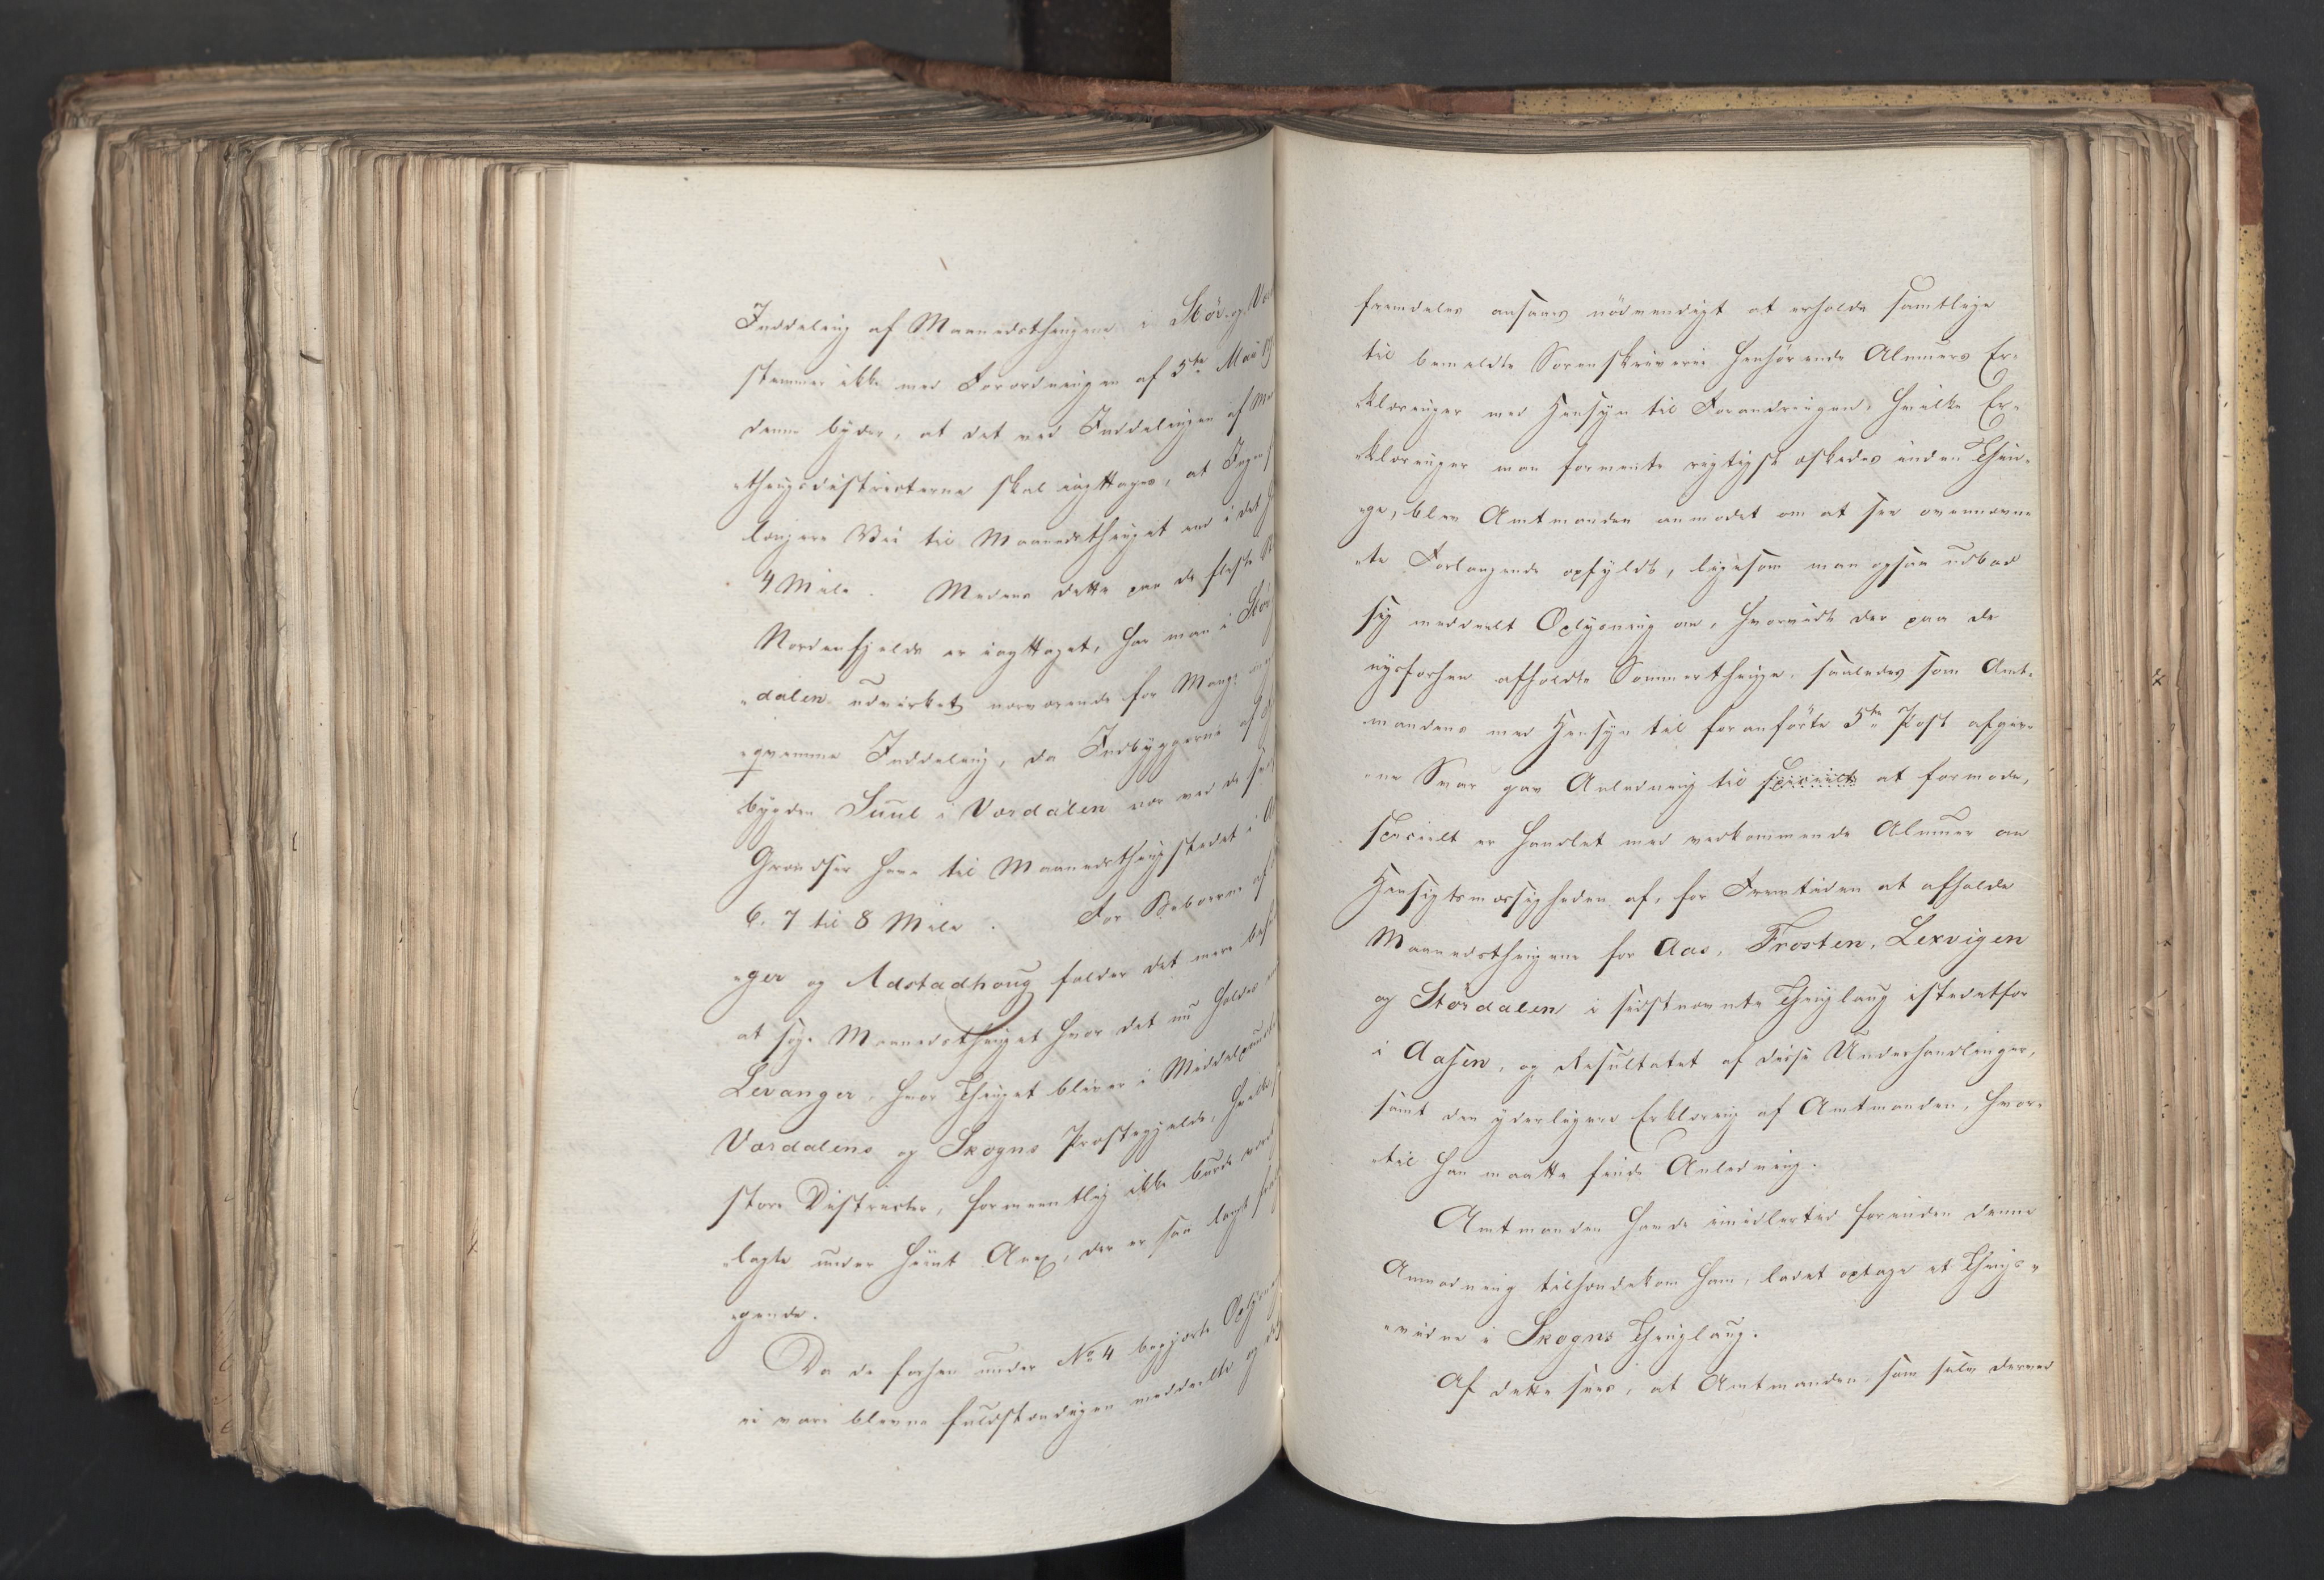 Inddeling af Maanedsthingene i Stör- og
stemmer ikke med Forordningen af 5te Maii
denne byder, at det ved Inddelingen af
„thingsdistricterne skal iagttages, at Ingen
længere Vei til Maanedsthinget end i det
4 Mile. Medens dette paa de fleste
Nordenfjelds er iagttaget, har man i Stör-
„dalen udvirket nærværende for Mange
„qvemme Inddeling, da Indbyggerne af
bygden Suul i Værdalen nær ved de
Grændser have til Maanedsthingstedet i
6. 7 til 8 Mile. For Beboerne af
„ger og Adstadhoug falder det mere
at söge Maanedsthinget hvor det nu holdes
Levanger, hvor Thinget bliver i Middelpunct
Værdalens og Skogns Præstegjelde, hvilke
store Districter, formeentlig ikke burde
„lagte under hiint Anex, der er saa langt
„gende.
Da de forhen under No 4 begjærte
ei vare blevne fuldstændigen meddeelte og
fremdeles ansaaes nödvendigt at erholde samtlige
til bemeldte Sorenskriverie henhörende Almuers Er-
„klæringer med Hensyn til Forandringen, hvilke Er-
„klæringer man formeente rigtigst æskedes inden Thin-
„ge, blev Amtmanden anmodet om at see ovennævn-
„te Forlangende opfyldt, ligesom man ogsaa udbad
sig meddeelt Oplysning om, hvorvidt der paa de
nysforhen afholdte Sommerthinge, saaledes som Amt-
mandens med Hensyn til foranförte 5te Post afgiv-
„ne Svar gav Anledning til specielt at formode,
specielt er handlet med vedkommende Almuer om
Hensigtsmæssigheden af, for Fremtiden at afholde
Maanedsthingene for Aas, Frosten, Lexvigen
og Stördalen i sidstnævnte Thinglaug istedetfor
i Aasen, og Resultatet af disse Underhandlinger,
samt den yderligere Erklæring af Amtmanden, hvor-
„til han maatte finde Anledning.
Amtmanden havde imidlertid forinden denne
Anmodning tilhændekom ham, ladet optage et Things-
„vidne i Skogns Thinglaug.
Af dette sees, at Amtmanden som selv derved